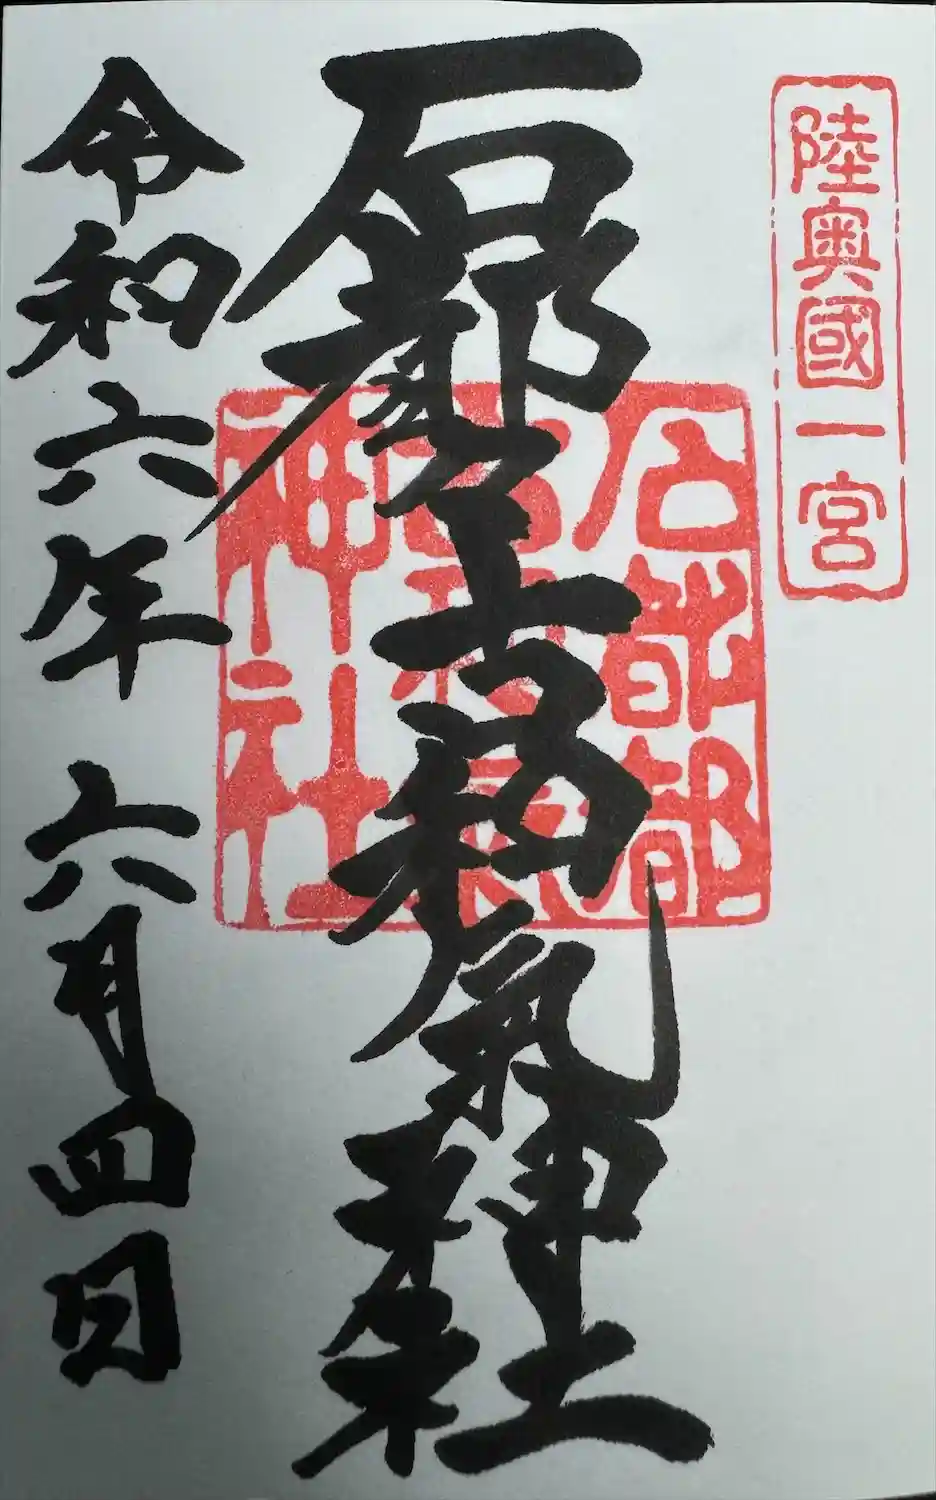 陸奥國一宮
石都都古和氣神社
石都々古和氣神社
令和六年 六月四日